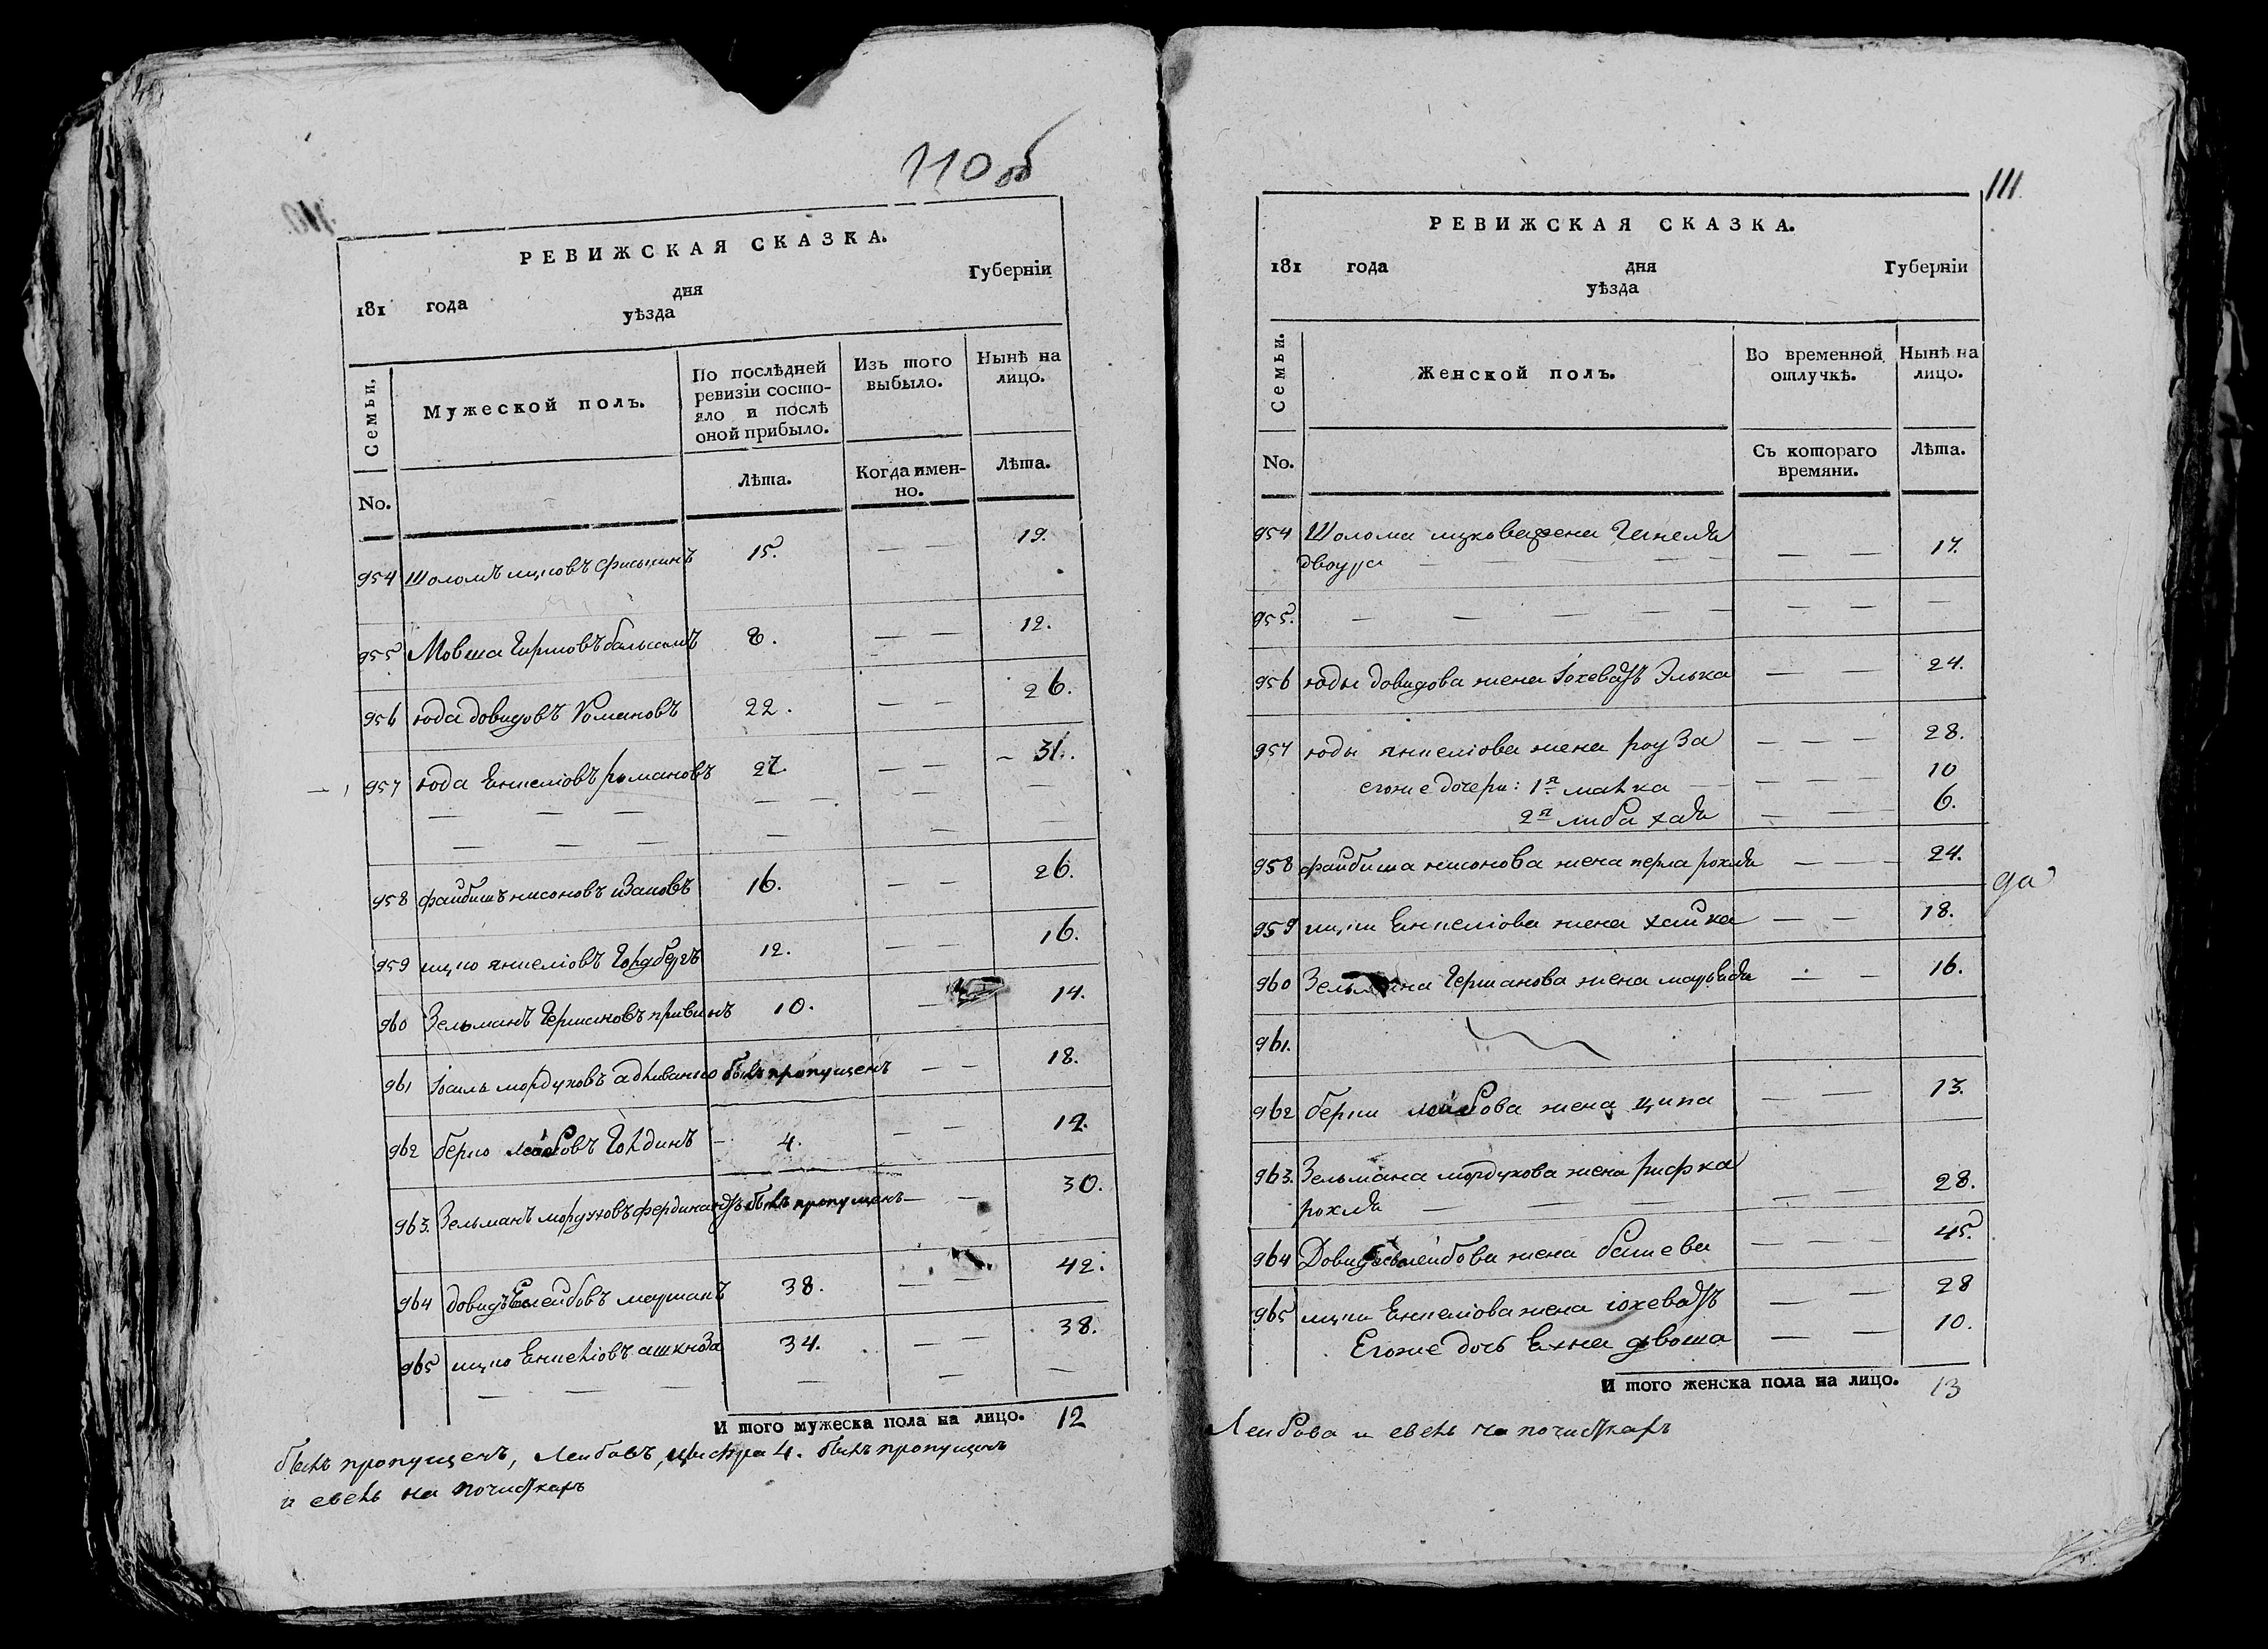 110 об
РЕВИЖСКАЯ СКАЗКА.
181 года дня Губерніи
уѣзда
Семьи. Мужеской полъ. По послѣдней ревизіи состояло и послѣ оной прибыло. Изъ того выбыло. Нынѣ на лицо.
No. Лѣта. Когда именно. Лѣта.
954 Шоломъ ицковъ 15. — — 19.
955 Мовша Гиршовъ 8. — — 12.
956 юда довидовъ Романовъ 22. — — 26.
957 юда Енкеліовъ романовъ 27. — — 31.
958 файбишъ нисоновъ 16. — — 26.
959 ицко янкеліовъ Голдбергъ 12. — — 16.
960 Зельманъ Гершановъ 10. — 14.
961 мордуховъ былъ пропущенъ — — 18.
962 берко лейбовъ Голдинъ 4. — — 12.
963. Зельманъ мордуховъ фердинандъ былъ пропущенъ — — 30.
964 довидъ лейбовъ 38. — — 42.
965 ицко Енкеліовъ 34. — 38.
И того мужеска пола на лицо. 12
былъ пропущенъ, Лейбовъ, 4. былъ пропущенъ
и на почисткахъ
111.
РЕВИЖСКАЯ СКАЗКА.
181 года дня Губерніи
уѣзда
Семьи. Женской полъ. Во временной отлучкѣ. Нынѣ на лицо.
No. Съ котораго времяни. Лѣта.
954 Шолома ицкова жена Гинелда — — 17.
двоура — — —
955. — — — — — — — —
956 юды довидова жена Іохевадъ Элька — — 24.
957 юды янкеліова жена роуза — — — 28.
егоже дочери: 1я малка — — — 10
2я либа хая — — 6.
958 файбиша нисонова жена перла рохля — — — 24.
959 ицки Енкеліова жена хайка — — 18.
960 Зельмана Гершанова жена — — 16.
961.
962 берки лейбова жена ципа — — 13.
963. Зельмана мордухова жена рифка
рохля — — — — — 28.
964 Довида лейбова жена башева — — — 45.
965 ицки Енкеліова жена іохевадъ — — 28
Егоже дочь двоша — — 10.
И того женска пола на лицо. 13
Лейбова и на почисткахъ